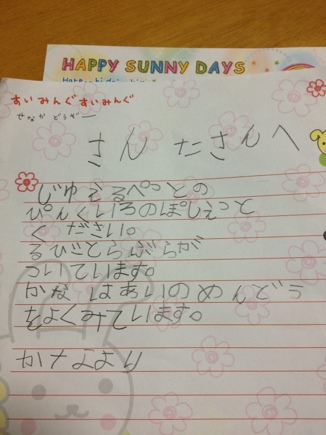 HAPPY SUNNY DAYS
すいみんぐすいみんぐ
せなか どうぞー
さんたさんへ
じゅえるぺっとの
ぴんくいろのぽしぇっと
ください。
るびことらぶらが
ついています。
かなはあいのめんどう
をよくみています。
かなより